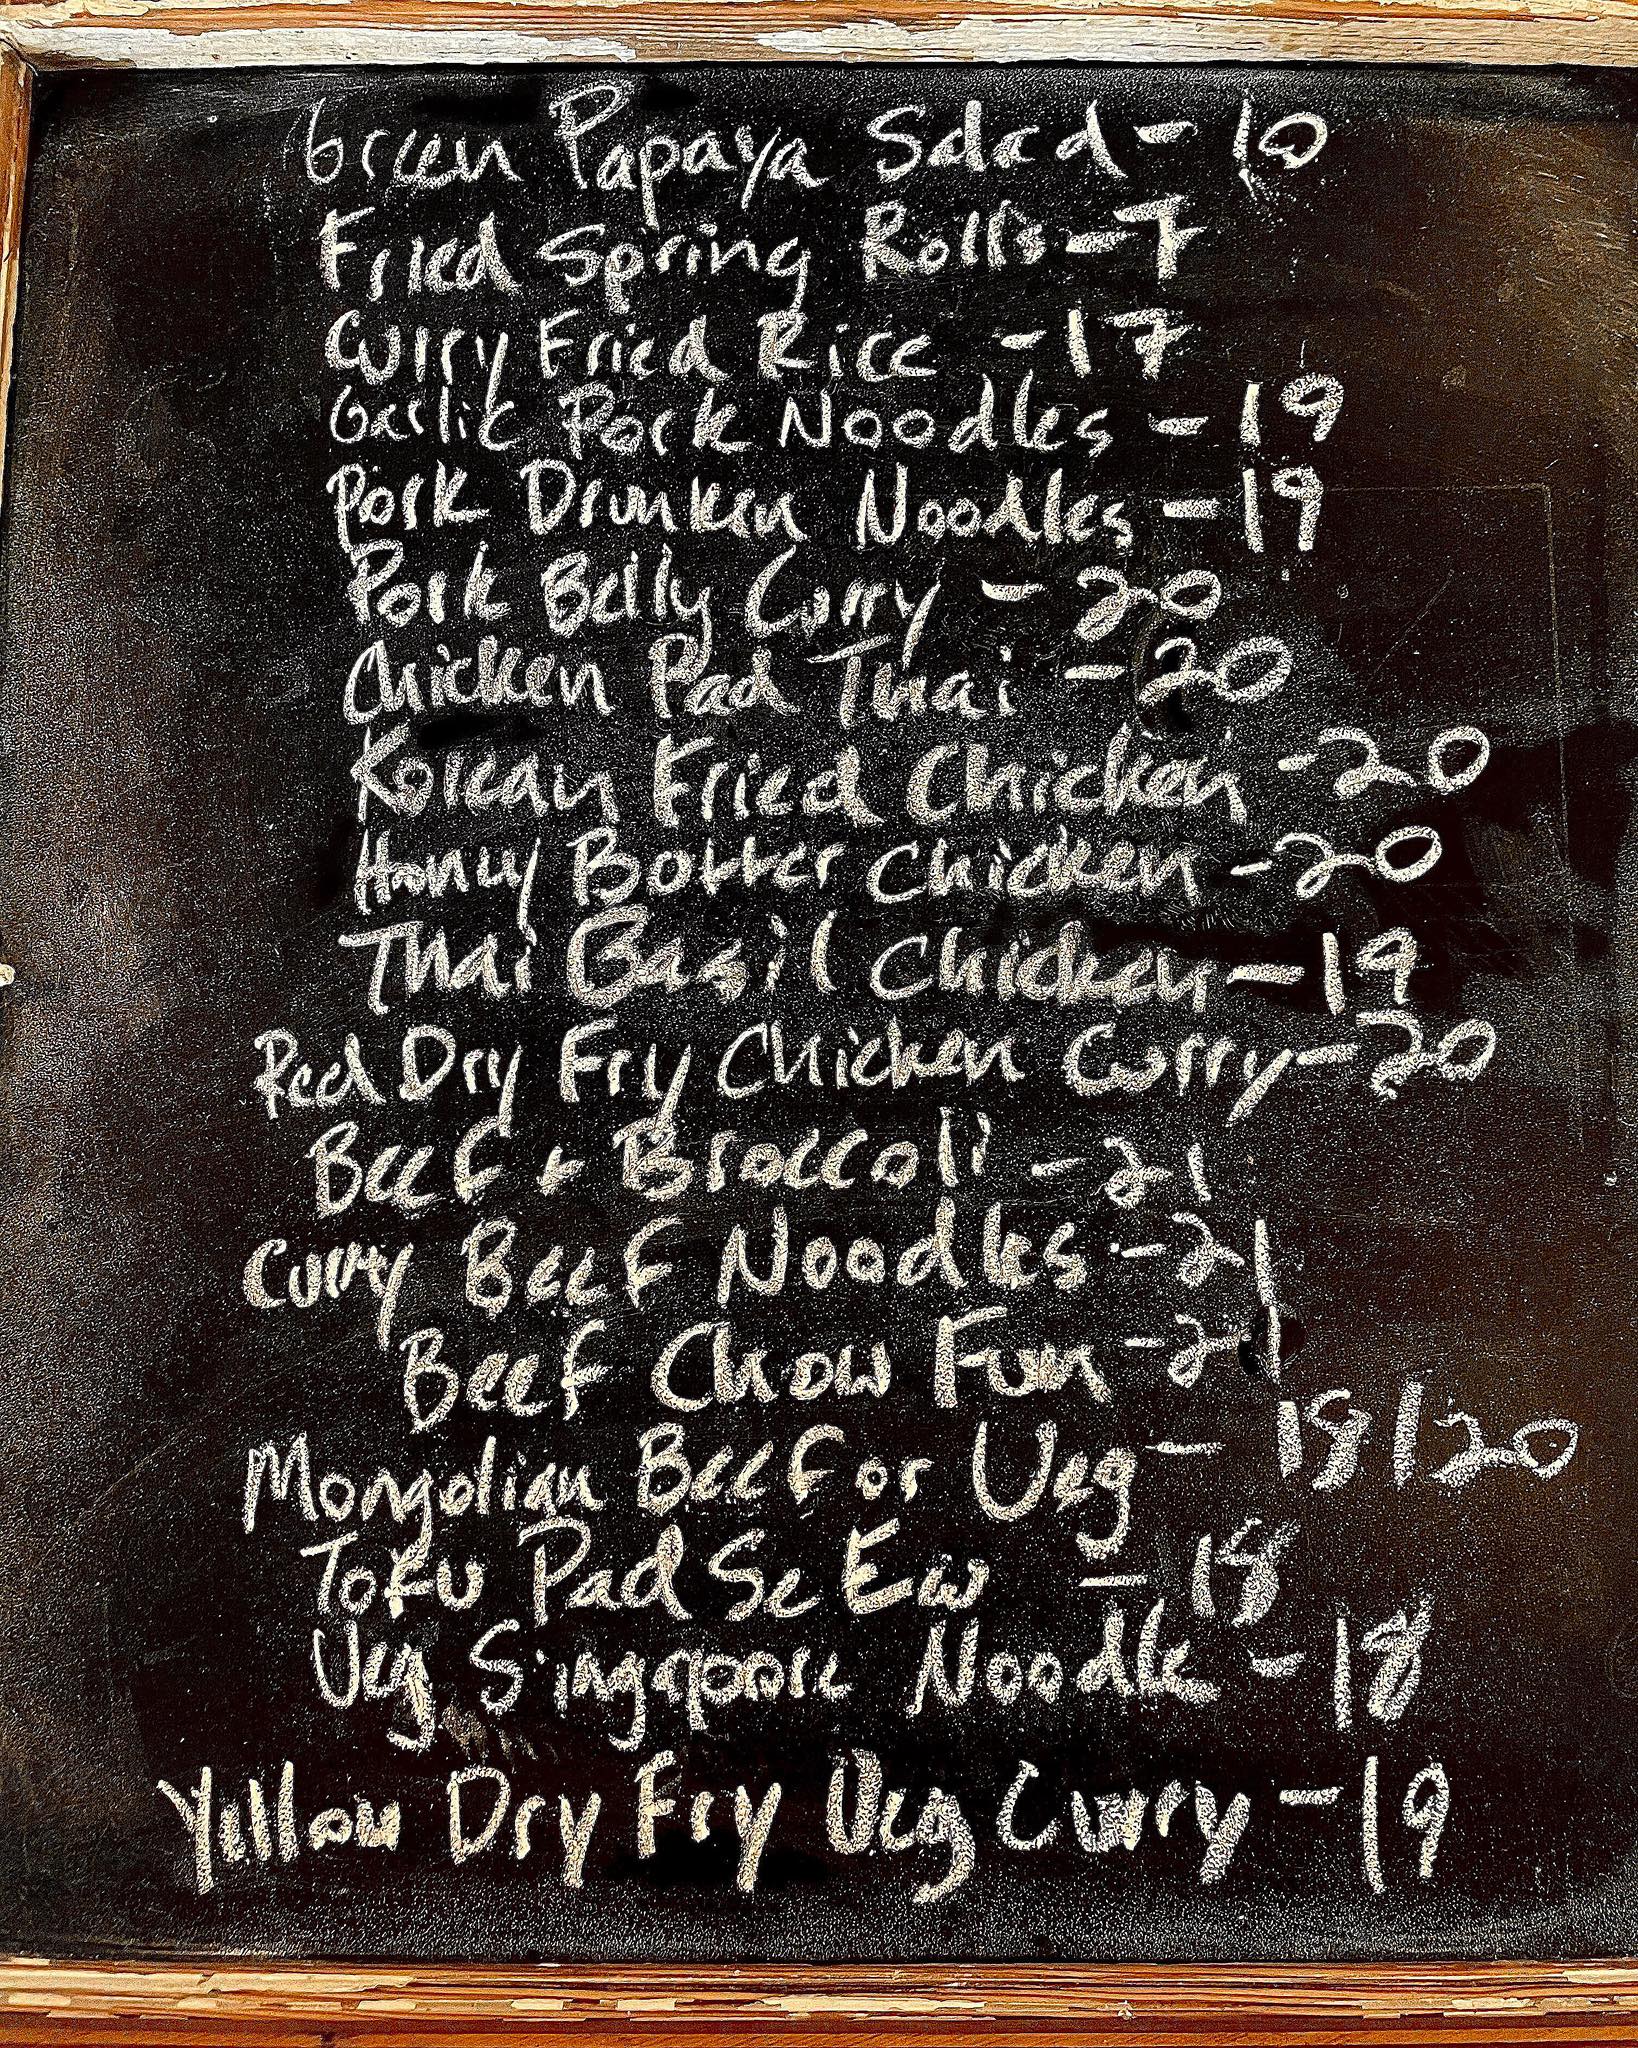 Green Papaya Salad - 10
Fried Spring Rolls - 7
Curry Fried Rice - 17
Garlic Pork Noodles - 19
Pork Drunken Noodles - 19
Pork Belly Curry - 20
Chicken Pad Thai - 20
Korean Fried Chicken - 20
Honey Butter Chicken - 20
Thai Basil Chicken - 19
Red Dry Fry Chicken Curry - 20
Beef + Broccoli - 21
Curry Beef Noodles - 21
Beef Chow Fun - 21
Mongolian Beef or Veg - 19/20
Tofu Pad Se Ew - 18
Veg Singapore Noodle - 18
Yellow Dry Fry Veg Curry - 19